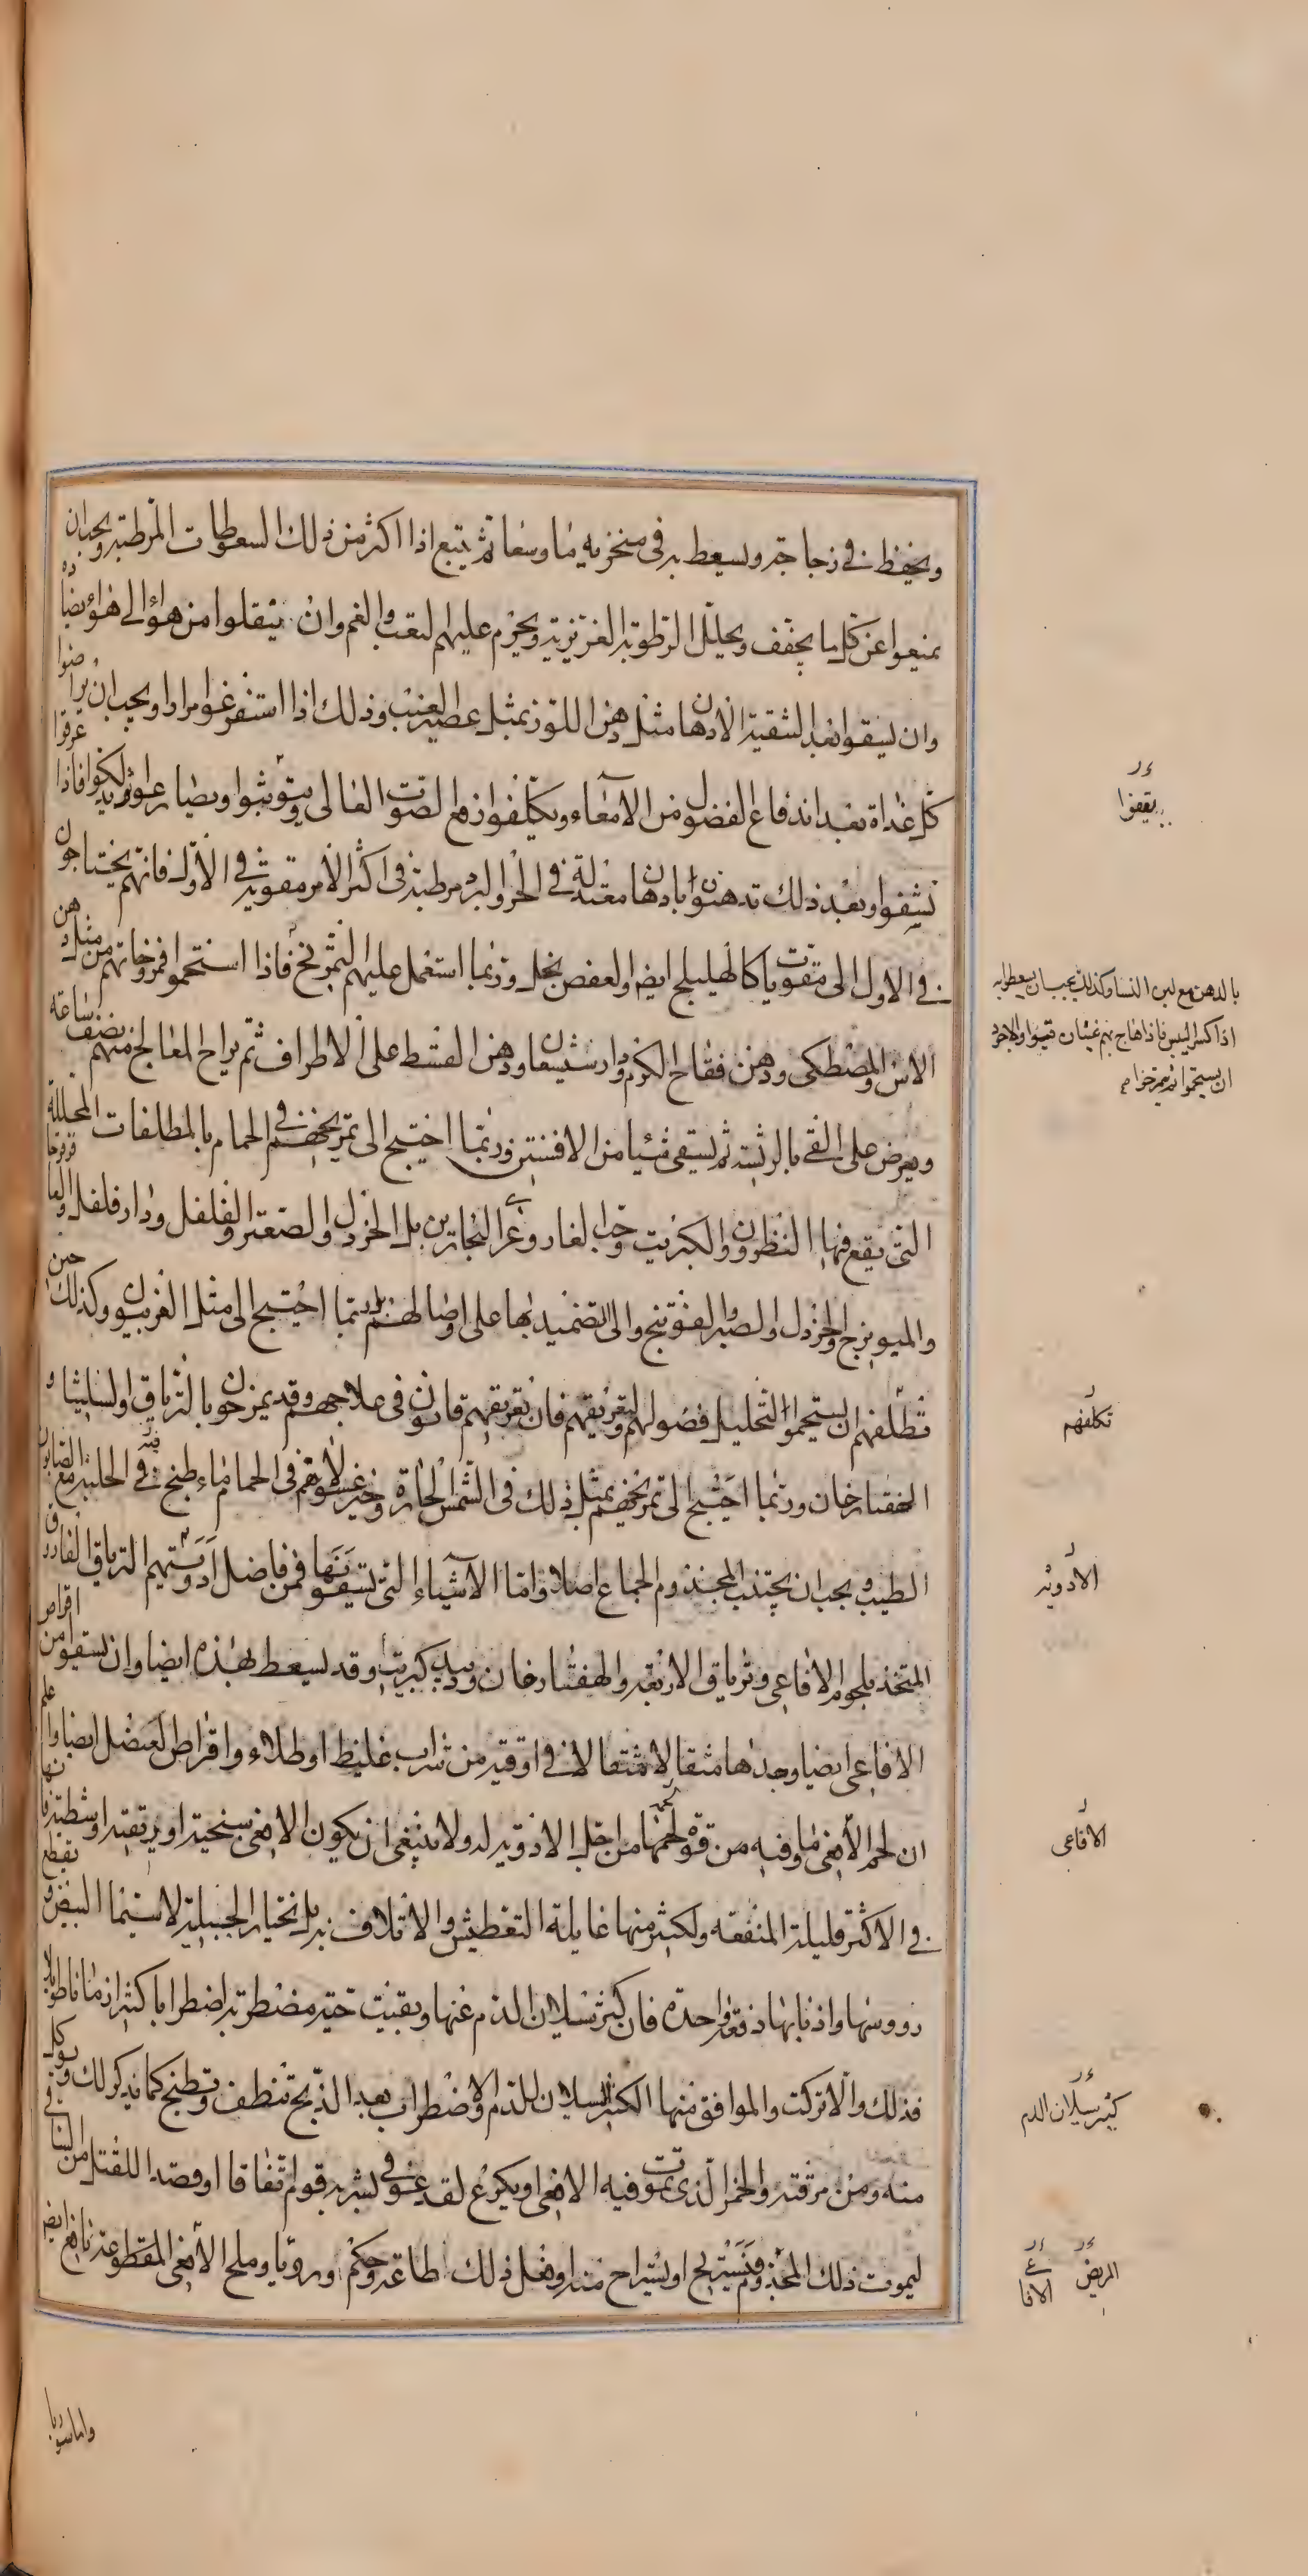 ويحفظ في زجاجة ويسعط به في منخريه ما وسعا ثم يتبع اذا اكثر من ذلك السعوطات المرطبة ويجب ان
يمنعوا عن كل ما يجفف ويحلل الرطوبة الغريزية ويحرم عليهم التعب والغم وان ينتقلوا من هواء الى هواء يضاده
وان يسقوا بعد التنقية الادهان مثل دهن اللوز بمثل عصير العنب وذلك اذا استفرغوا مرارا ويجب ان يراضوا
كل غداة بعد اندفاع الفضول من الامعاء ويكلفوا رفع الصوت العالى ويتوثبوا ويصارعوا ثم يدلكوا فاذا عرقوا
نشفوا وبعد ذلك تدهنوا بادهان معتدلة في الحر والبرد مرطبة في اكثر الامر مقوية في الاول فانهم يحتاجون
في الاول الى مقويات كالهليلج ايضا والعفص بخل وربما استعمل عليهم التمريخ فاذا استحموا فمروخاتهم من مثل دهن
الاس والمصطكى ودهن فقاح الكرم ودارشيشعان ودهن القسط على الاطراف ثم يراح المعالج منهم نصف ساعة
ويعرض على القئ بالريشة ثم يسقى شيئا من الافسنتين وربما احتيج الى تمريخهم في الحمام بالمطلفات المحللة
التى يقع فيها النظرون والكبريت وحب الغار وغرا النجارين بل الخردل والصعتر والفلفل ودار فلفل والعاقرقرحا
والميويزج والخردل والصبر والفوتنج والى تضميد بها على اوصالهم بل ربما احتيج الى مثل الفربيون وكذلك حين
تطلفهم ان يستحموا لتحليل فضولهم ولتعريقهم فان تعريقهم قانون في علاجهم وقد يمزخون بالترياق والسليثا و
القفتارخان وربما احتيج الى تمريخهم بمثل ذلك في الشمس الحارة وخير غسولاتهم في الحمام ماء طبخ فيه الحلبة مع الصابون
الطيب ويجب ان يجتنب المجذوم الجماع اصلا واما الاشياء التى يسقونها فمن فاضل ادويتهم الترياق الفاروق
المتخذ بلحوم الافاعى وترياق الاربعة والهفتارخان ودبيد كبريتا وقد يسعط بهذه ايضا وان يسقوا من اقراص
الافاعى ايضا وحدها مثقالا مثقالا في اوقية من شراب غليظ او طلاء واقراص العنصل ايضا واعلم
ان لحم الافعى وما فيه من قوة لحمها من اجل الادوية له ولا ينبغى ان يكون الافعى سبخية او ريفية او شطية فانها
في الاكثر قليلة المنفعة ولكثير منها غايلة التعطيش والاتلاف بل تختار الجبلية لا سيما البيض ويقطع
رووسها واذنابها دفعة واحدة فان كثر سيلان الدم عنها وبقيت حية مضطربة اضطرابا كثيرا زمانا طويلا
فذلك والا تركت والموافق منها الكثير السيلان للدم والاضطراب بعد الذبح تنظف وتطبخ كما نذكر لك ويوكل
منه ومن مرقته والخمر الذى تموت فيه الافعى او يكرع لقد عوفى بشربه قوم اتفاقا او قصدا للقتل من الناس
ليموت ذلك المجذوم فيستريح او يستراح منه او فعل ذلك طاعة وحكم ورويا وملح الافعى المقطوعة نافع ايضا
واما سوربا
يقعفوا
بالدهن مع لبن النساء وكذلك يجب ان يسعطوا به
اذا كسر اليبس فاذا هاج بهم غثيان قيئوا والاجود
ان يستحموا ثم يمرخوا
تكلفهم
الادوية
الافاعى
كثير سيلان الدم
المريض
الافاعى